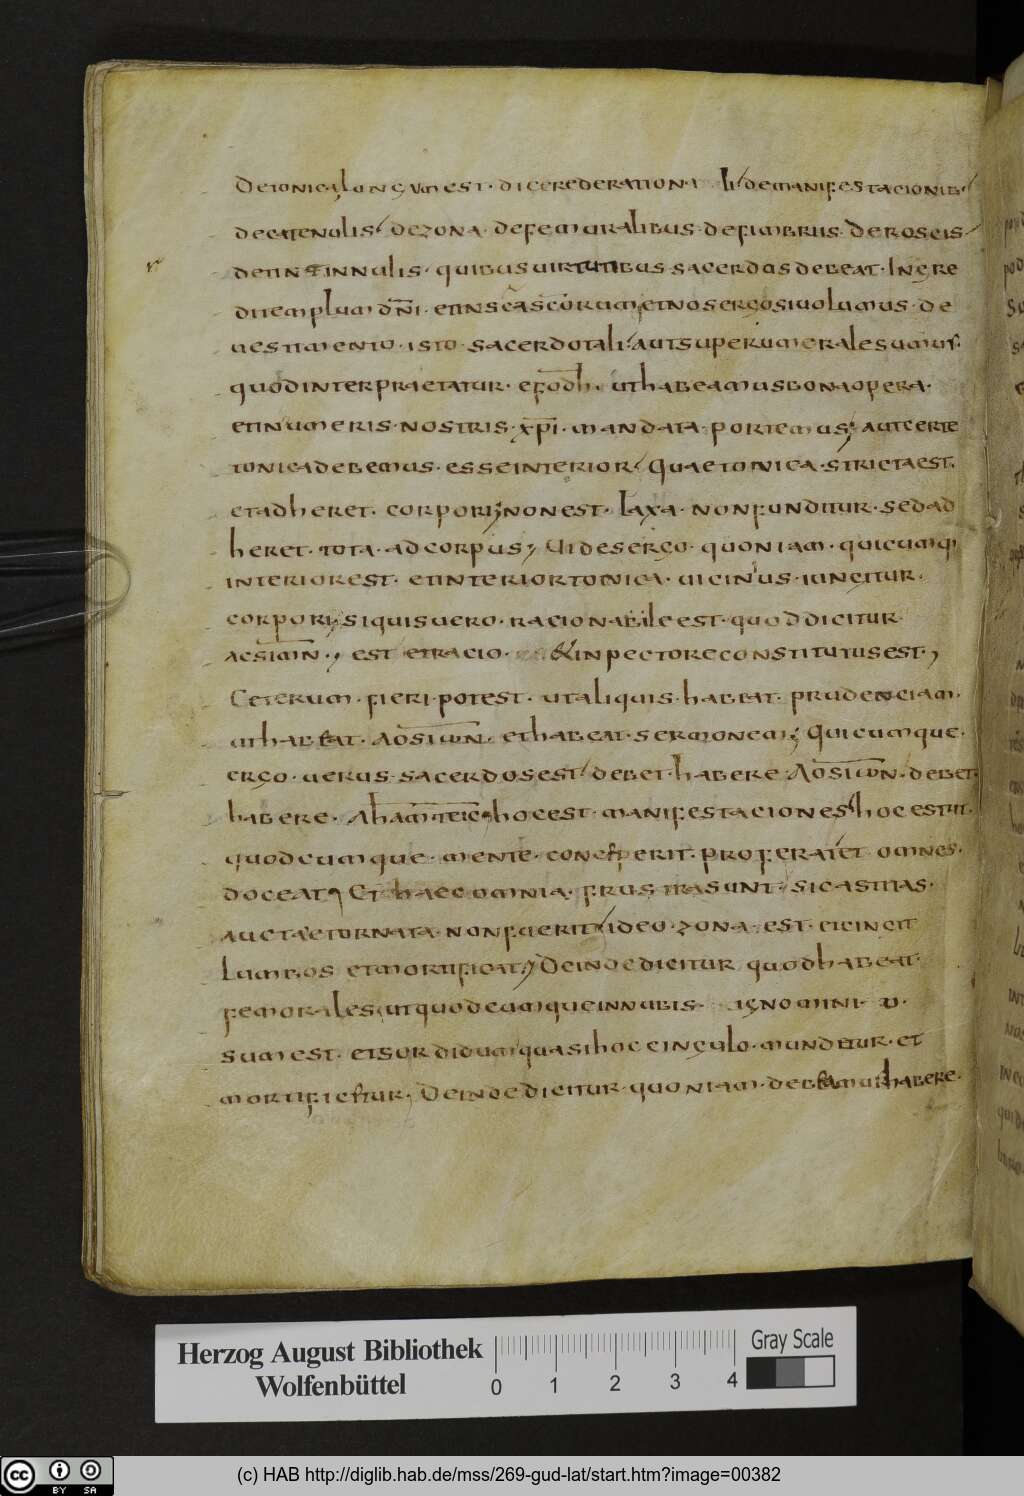 De tonica longum est· dicere de rationali de manifestacionib·
de catenulis· de zona· de femuralibus· de fimbriis· De roseis
de tintinnulis· quibus uirtutibus sacerdos debeat· Ingre
di templum dn̄i· et in sc̄a sc̄orum et nos ergo si uolumus· de
uestimento· isto· sacerdotali· aut superumerale sumus·
quod interpraetatur· efodh· ut habeamus bona opera·
et in umeris· nostris· xp̄i· mandata· portemus; aut certe
tonica debemus· esse interior· Quae tonica· stricta est
et adheret· corpori; non est· laxa· non funditur· sed ad
heret· tota· ad corpus; Uides ergo· quoniam· quicumq·
interior est· et interior tonica· uicinus· iungitur·
corpori; si quis uero· racionabile est· quod dicitur
est et racio· & in pectore constitutus est·;
Ceterum· fieri· potest· ut aliquis· habeat· prudenciam·
ut habeat· et habeat· sermonem; Quicumque·
ergo· uerus· sacerdos est· debet· habere· debet·
habere· hoc est· manifestaciones· hoc est· ut·
quodcumque· mente· conceperit· proferat et omnes·
doceat; Et haec omnia· frustra sunt· si castitas·
aucta et ornata· non fuerit ideo· zona· est· et cingit
Lumbos et mortificat; Deinde dicitur quod habeat·
femorales ut quodcumque in nubis· ignomini·
sum est· et sordidum quasi hoc cingulo· mundetur· et
mortificetur; Deinde dicitur· quoniam· debeamus habere·
Herzog August Bibliothek
Wolfenbüttel
0 1 2 3 4
Gray Scale
cc BY SA
(c) HAB http://diglib.hab.de/mss/269-gud-lat/start.htm?image=00382